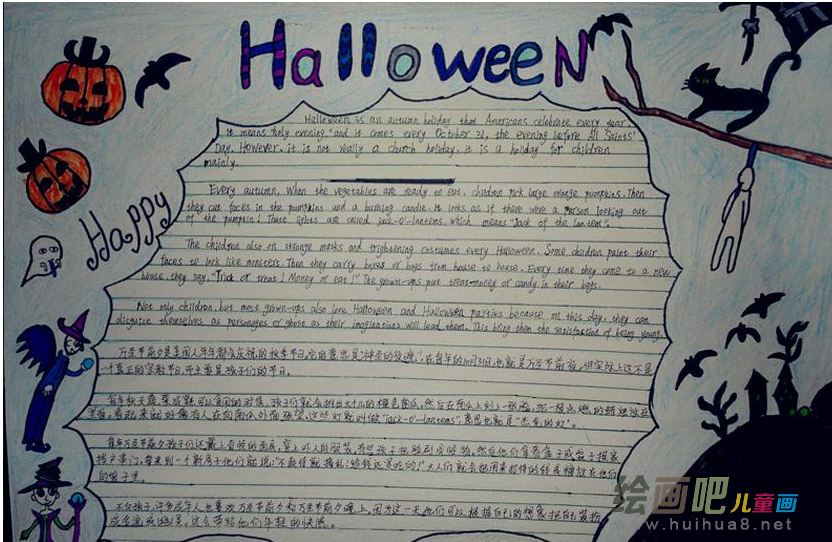 Halloween
Happy
Halloween is an autumn holiday that Americans celebrate every year.
it means "holy evening," and it comes every October 31, the evening before All Saints'
Day. However, it is not really a church holiday, it is a holiday for children
mainly.
Every autumn, When the vegetables are ready to eat, children pick large orange pumpkins. Then
they cut faces in the pumpkins and a burning candle. It looks as if there were a person looking out
of the pumpkin! These lights are called jack-o'-lantens, which means "Jack of the lantern".
The children also on strange masks and frightening costumes every Halloween. Some children paint their
faces to look like monsters. Then they carry boxes or bags from house to house. Every time they come to a new
house, they say, "Trick or treat! Money or eat!" The grown-ups put treat-money or candy in their bags.
Not only children, but most grown-ups also love Halloween and Halloween parties because on this day, they can
disguise themselves as personages or ghost as their imaginations will lead them. This bring them the satisfaction of being young.
万圣节前夕是美国人年年都会庆祝的秋季节日。它的意思是"神圣的夜晚",在每年的10月31日,也就是万圣节前夜。但实际上这不是
一个真正的宗教节日,而主要是孩子们的节日。
每年秋天蔬菜成熟可以食用的时候,孩子们就会挑出大个儿的橙色南瓜,然后在南瓜上刻上一张脸,把一根点燃的蜡烛放在
里面。看起来就好像有人在向南瓜外面张望。这些灯就叫做"Jack-o'-lantens",意思也就是"杰克的灯"。
每年万圣节前夕孩子们还戴上奇怪的面具,穿上吓人的服装。有些孩子把脸刷成怪物。然后他们拿着盒子或袋子挨家
挨户串门。每来到一个新房子他们就说:"不款待就捣乱!给钱还是吃的!"大人们就会把用来招待的钱或糖放在他们
的袋子里。
不仅孩子,许多成年人也喜欢万圣节前夕和万圣节前夕晚上。因为这一天他们可以根据自己的想象把自己装扮
成名流或幽灵。这会带给他们年轻的快感。
绘画吧儿童画
www.huihua8.net